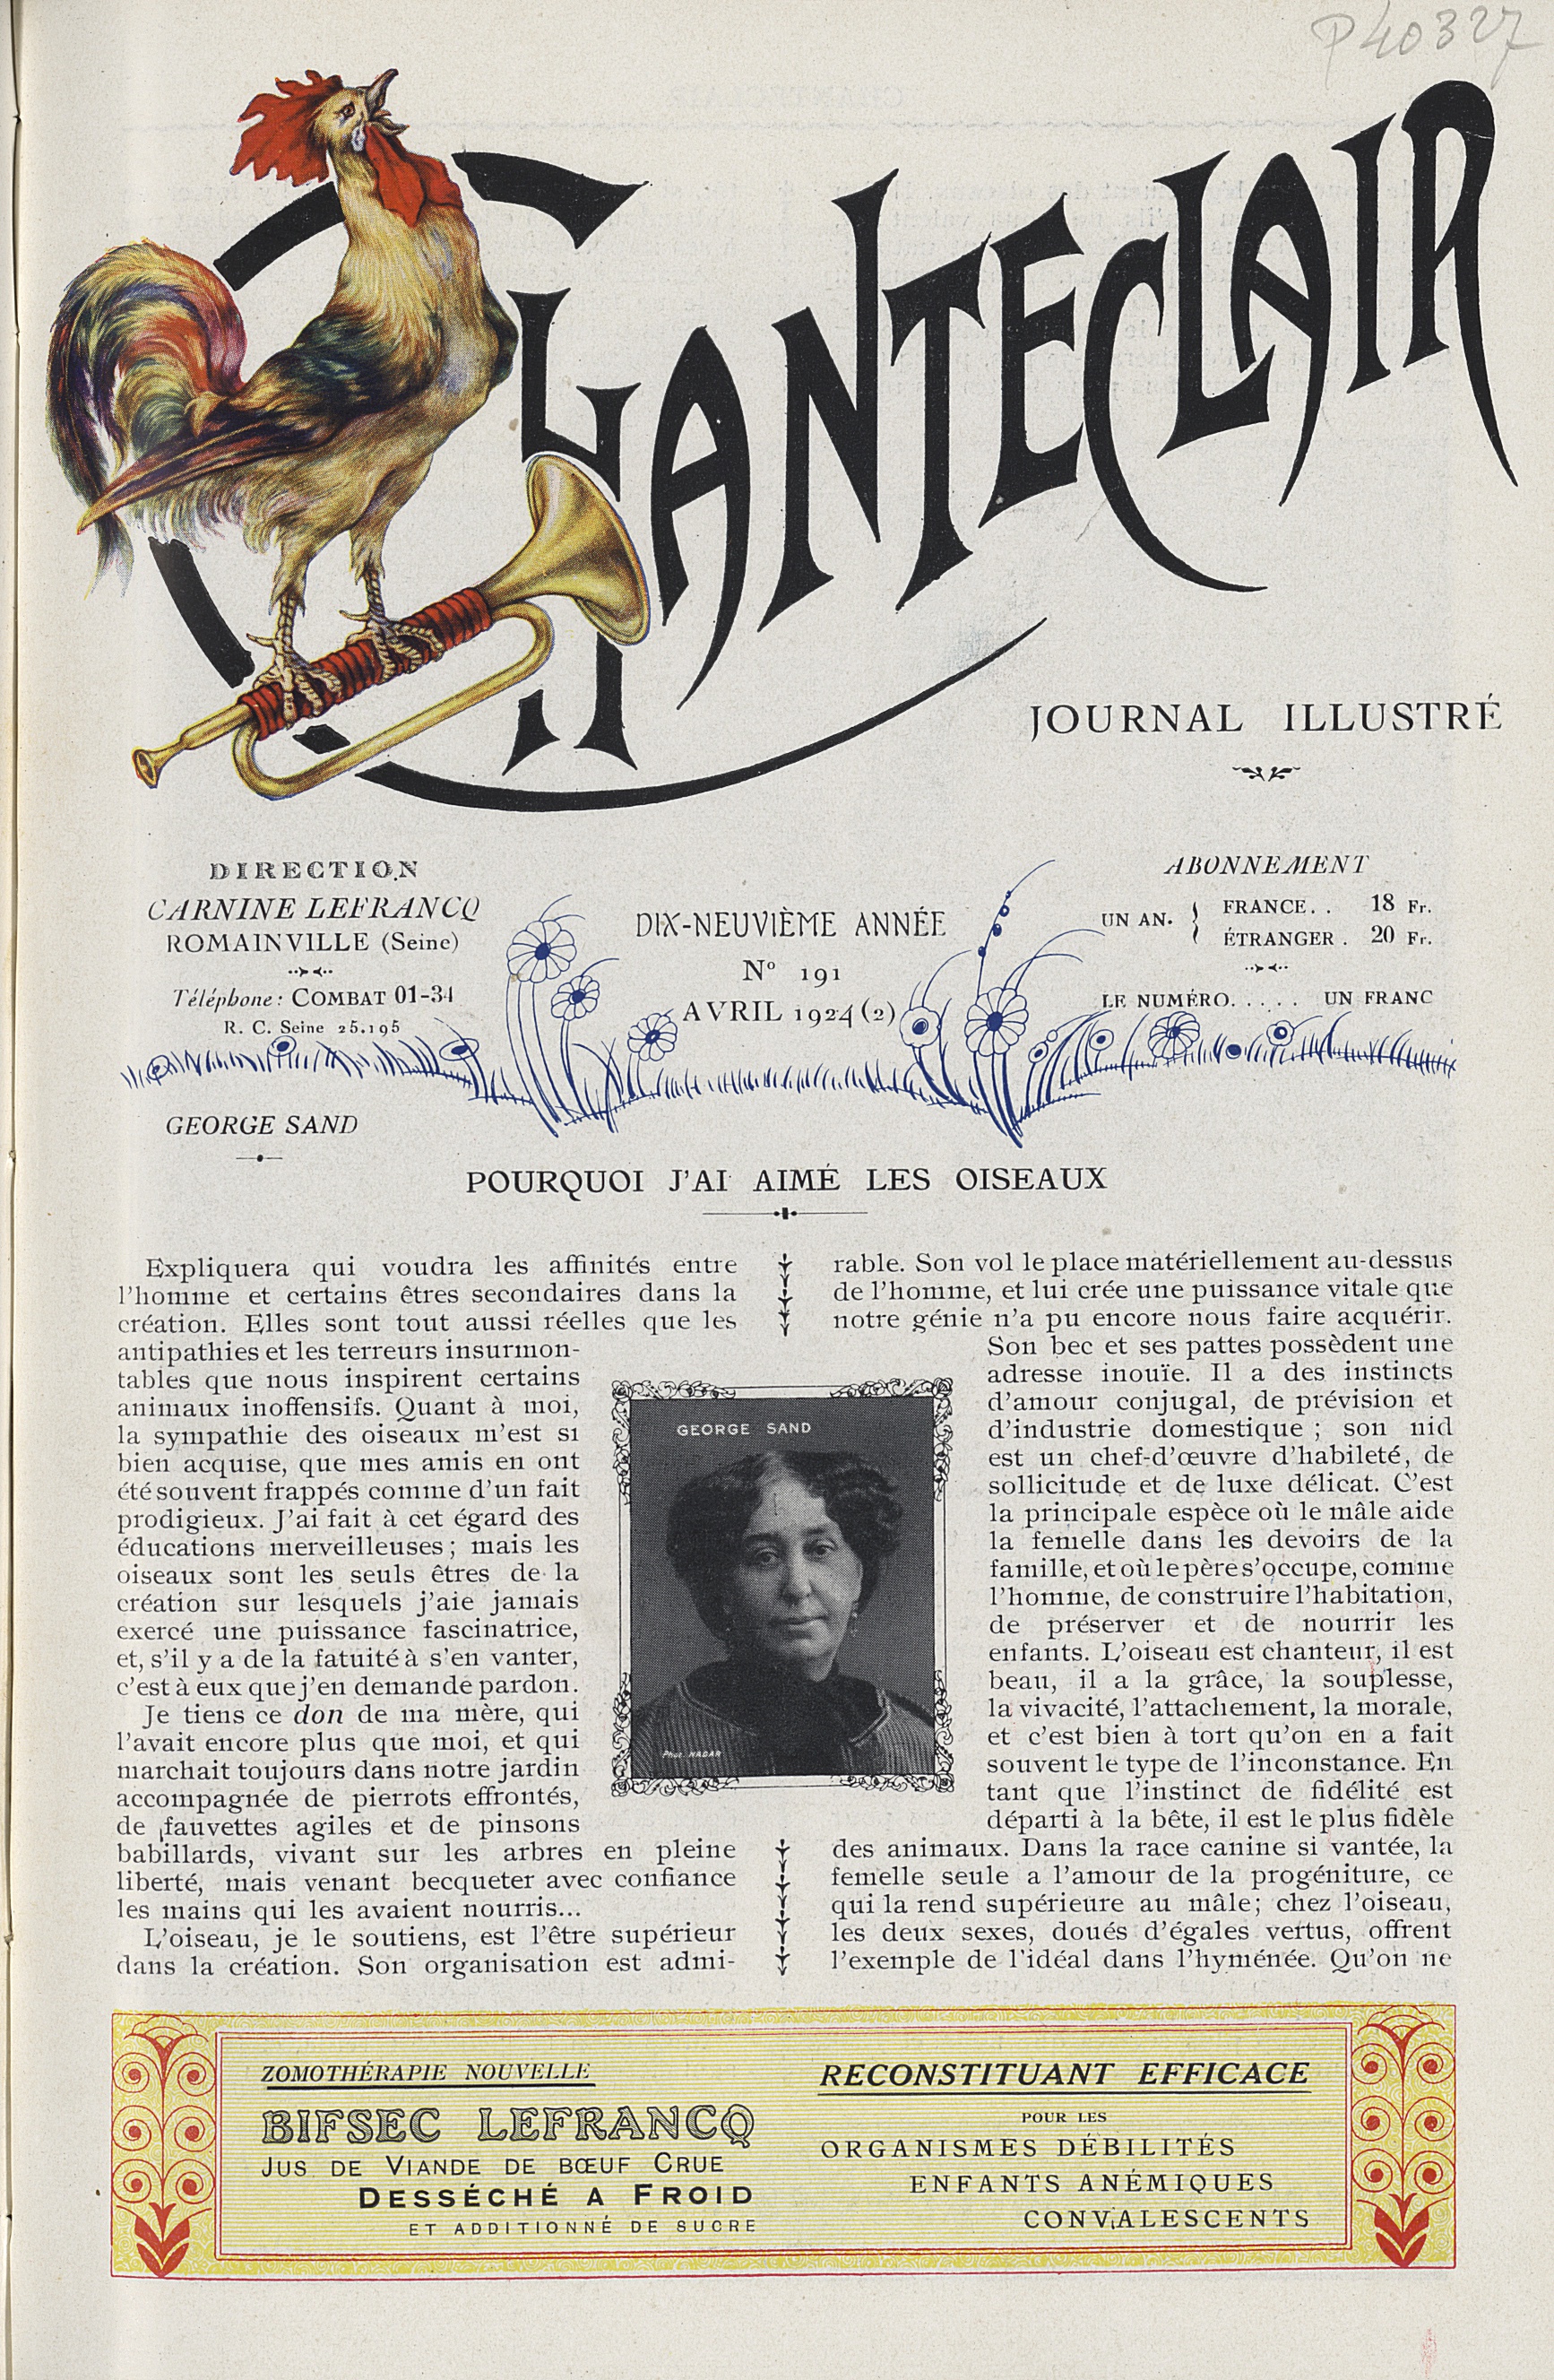 P40327
CHANTECLAIR
JOURNAL ILLUSTRÉ
DIRECTION
CARNINE LEFRANCQ
ROMAINVILLE (Seine)
Téléphone : COMBAT 01-34
R. C. Seine 25.195
DIX-NEUVIÈME ANNÉE
No 191
AVRIL 1924 (2)
ABONNEMENT
UN AN. { FRANCE. . 18 Fr.
ÉTRANGER . 20 Fr.
LE NUMÉRO. . . . . UN FRANC
GEORGE SAND
POURQUOI J'AI AIMÉ LES OISEAUX
Expliquera qui voudra les affinités entre
l'homme et certains êtres secondaires dans la
création. Elles sont tout aussi réelles que les
antipathies et les terreurs insurmon-
tables que nous inspirent certains
animaux inoffensifs. Quant à moi,
la sympathie des oiseaux m'est si
bien acquise, que mes amis en ont
été souvent frappés comme d'un fait
prodigieux. J'ai fait à cet égard des
éducations merveilleuses ; mais les
oiseaux sont les seuls êtres de la
création sur lesquels j'aie jamais
exercé une puissance fascinatrice,
et, s'il y a de la fatuité à s'en vanter,
c'est à eux que j'en demande pardon.
Je tiens ce don de ma mère, qui
l'avait encore plus que moi, et qui
marchait toujours dans notre jardin
accompagnée de pierrots effrontés,
de fauvettes agiles et de pinsons
babillards, vivant sur les arbres en pleine
liberté, mais venant becqueter avec confiance
les mains qui les avaient nourris...
L'oiseau, je le soutiens, est l'être supérieur
dans la création. Son organisation est admi-
GEORGE SAND
Phot. NADAR
rable. Son vol le place matériellement au-dessus
de l'homme, et lui crée une puissance vitale que
notre génie n'a pu encore nous faire acquérir.
Son bec et ses pattes possèdent une
adresse inouïe. Il a des instincts
d'amour conjugal, de prévision et
d'industrie domestique ; son nid
est un chef-d'œuvre d'habileté, de
sollicitude et de luxe délicat. C'est
la principale espèce où le mâle aide
la femelle dans les devoirs de la
famille, et où le père s'occupe, comme
l'homme, de construire l'habitation,
de préserver et de nourrir les
enfants. L'oiseau est chanteur, il est
beau, il a la grâce, la souplesse,
la vivacité, l'attachement, la morale,
et c'est bien à tort qu'on en a fait
souvent le type de l'inconstance. En
tant que l'instinct de fidélité est
départi à la bête, il est le plus fidèle
des animaux. Dans la race canine si vantée, la
femelle seule a l'amour de la progéniture, ce
qui la rend supérieure au mâle ; chez l'oiseau,
les deux sexes, doués d'égales vertus, offrent
l'exemple de l'idéal dans l'hyménée. Qu'on ne
ZOMOTHÉRAPIE NOUVELLE
BIFSEC LEFRANCQ
JUS DE VIANDE DE BŒUF CRUE
DESSÉCHÉ A FROID
ET ADDITIONNÉ DE SUCRE
RECONSTITUANT EFFICACE
POUR LES
ORGANISMES DÉBILITÉS
ENFANTS ANÉMIQUES
CONVALESCENTS